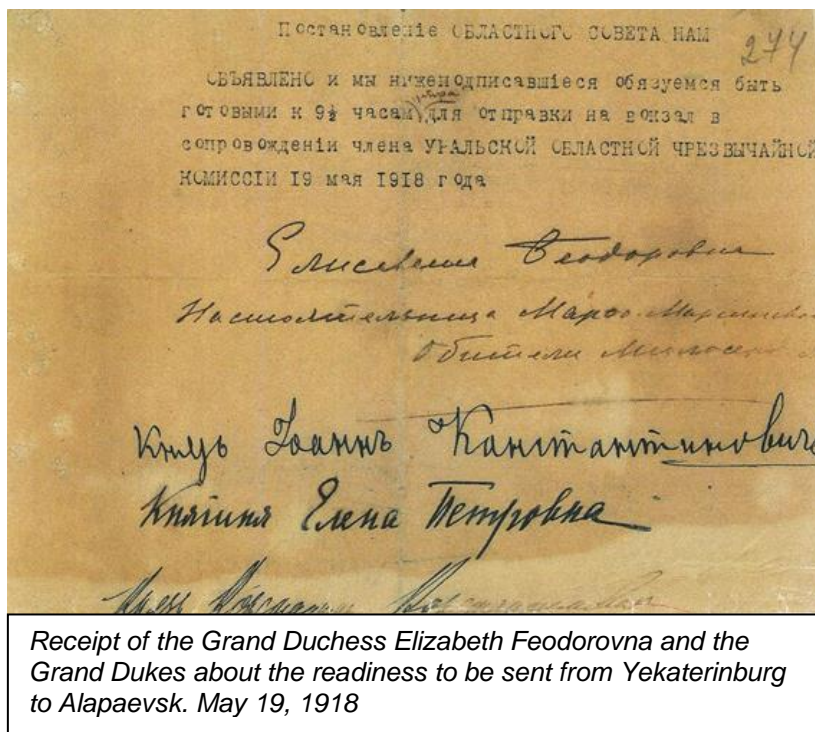 Постановленіе ОБЛАСТНОГО СОВЕТА НАМ
274
ОБЪЯВЛЕНО и мы нижеподписавшіеся обязуемся быть
утра
готовыми к 9½ часам для отправки на вокзал в
сопровожденіи члена УРАЛЬСКОЙ ОБЛАСТНОЙ ЧРЕЗВЫЧАЙНОЙ
КОМИССІИ 19 мая 1918 года
Елисавета Феодоровна
Настоятельница Марфо-Маріинской
Обители Милосердія
Князь Іоаннъ Константиновичъ
Княгиня Елена Петровна
Князь Константин Константинович
Receipt of the Grand Duchess Elizabeth Feodorovna and the
Grand Dukes about the readiness to be sent from Yekaterinburg
to Alapaevsk. May 19, 1918